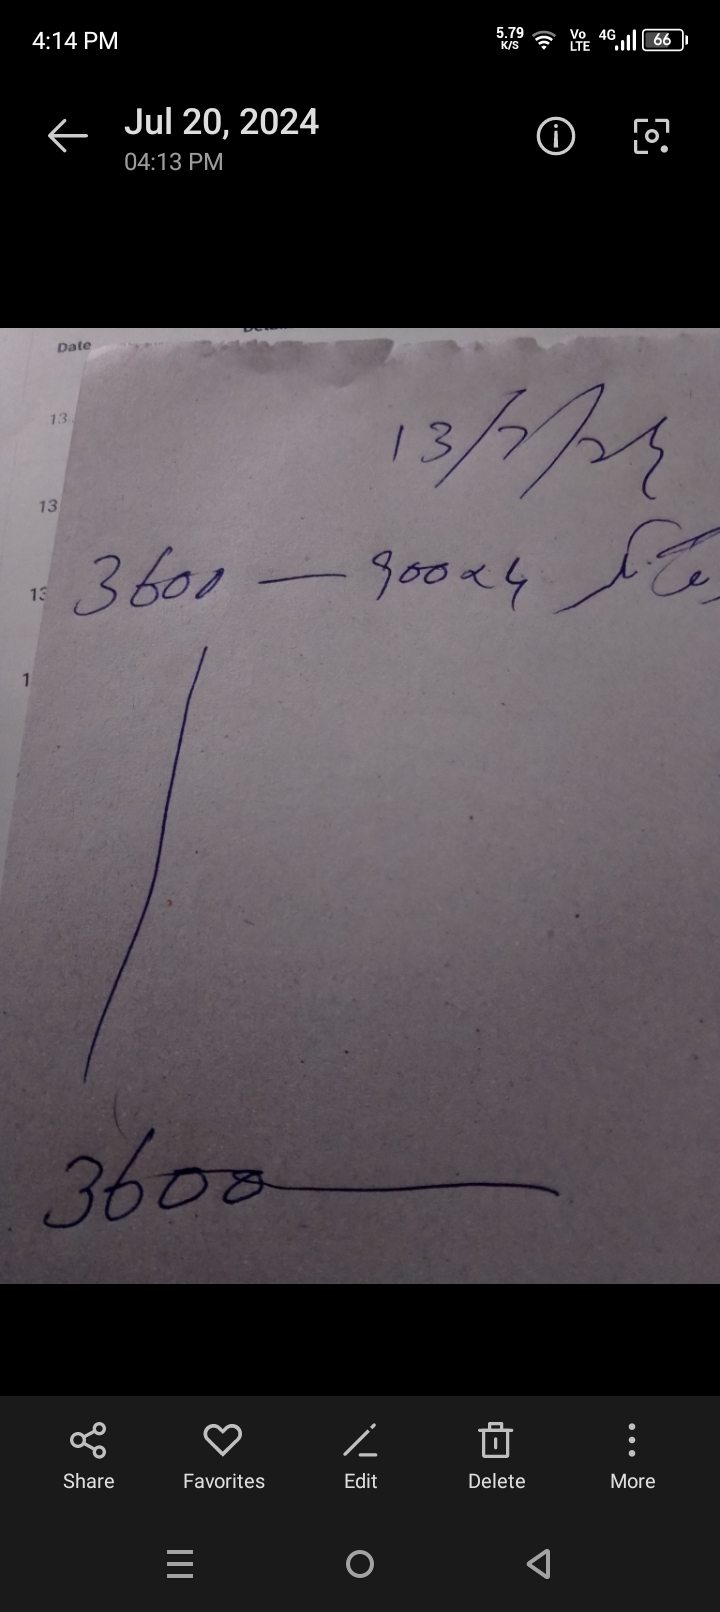 4:14 PM 5.79 K/S Vo LTE 4G 66
Jul 20, 2024
04:13 PM
Date
13
13
13
1
13/7/24
3600 — 900x4
3600
Share Favorites Edit Delete More